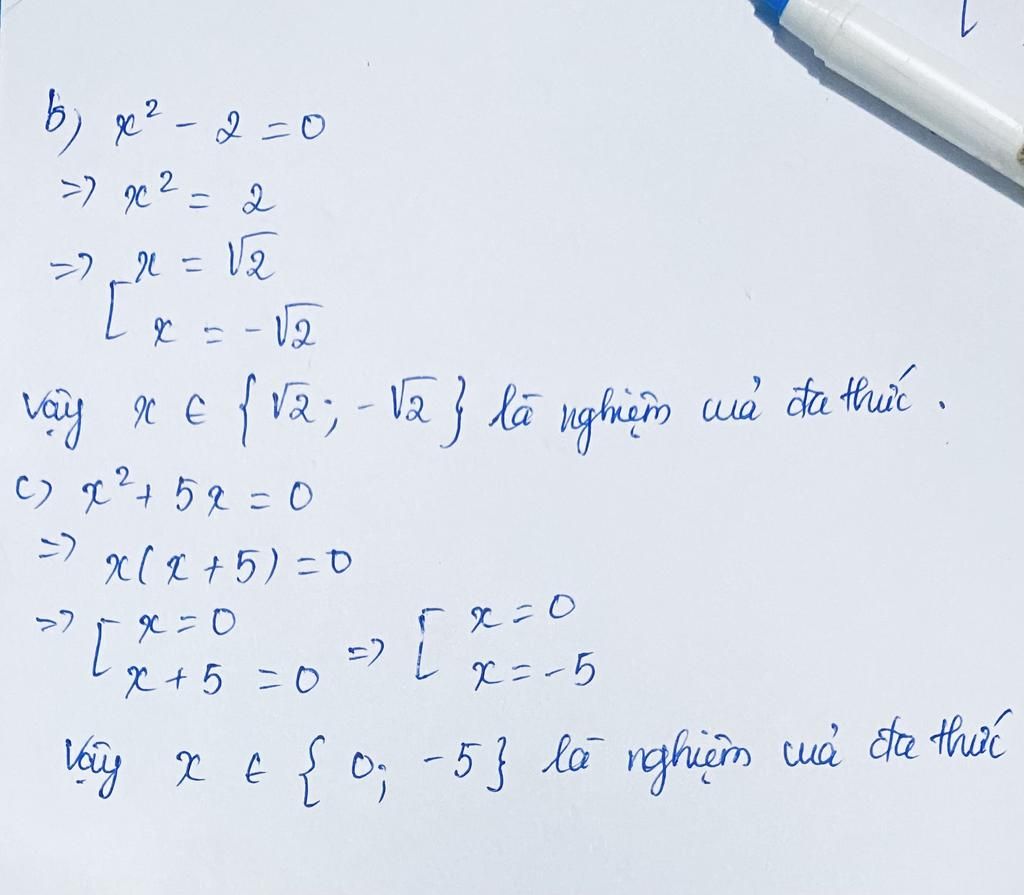 b) x² - 2 = 0
=> x² = 2
=> [ x = √2
x = -√2
Vậy x ∈ {√2; -√2} là nghiệm của đa thức.
c) x² + 5x = 0
=> x(x + 5) = 0
=> [ x = 0 => [ x = 0
x + 5 = 0 x = -5
Vậy x ∈ {0; -5} là nghiệm của đa thức